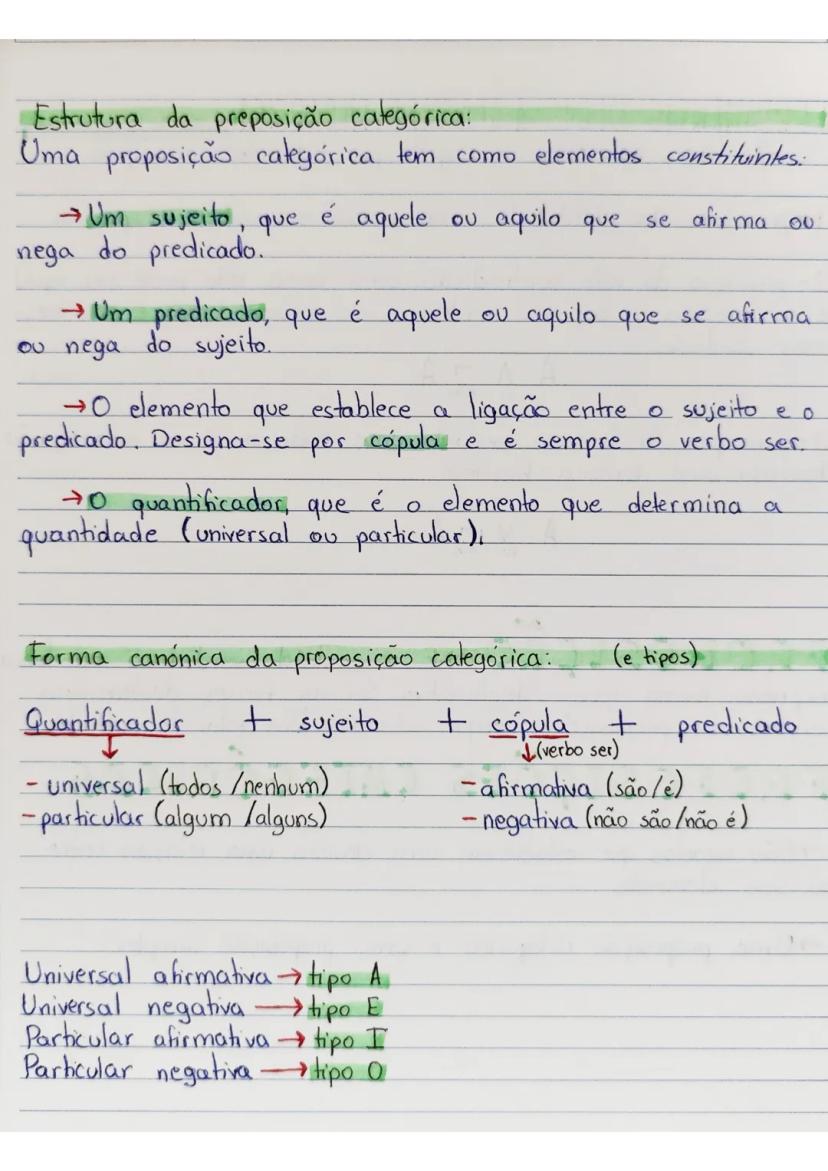 Estrutura da preposição categórica:
Uma proposição categórica tem como elementos constituintes:
→ Um sujeito, que é aquele ou aquilo que se afirma ou
nega do predicado.
→ Um predicado, que é aquele ou aquilo que se afirma
ou nega do sujeito.
→ O elemento que establece a ligação entre o sujeito e o
predicado. Designa-se por cópula e é sempre o verbo ser.
→ O quantificador, que é o elemento que determina a
quantidade (universal ou particular).
Forma canónica da proposição categórica: (e tipos)
Quantificador + sujeito + cópula + predicado
↓ ↓(verbo ser)
- universal (todos/nenhum) - afirmativa (são/é)
- particular (algum/alguns) - negativa (não são/não é)
Universal afirmativa → tipo A
Universal negativa → tipo E
Particular afirmativa → tipo I
Particular negativa → tipo O